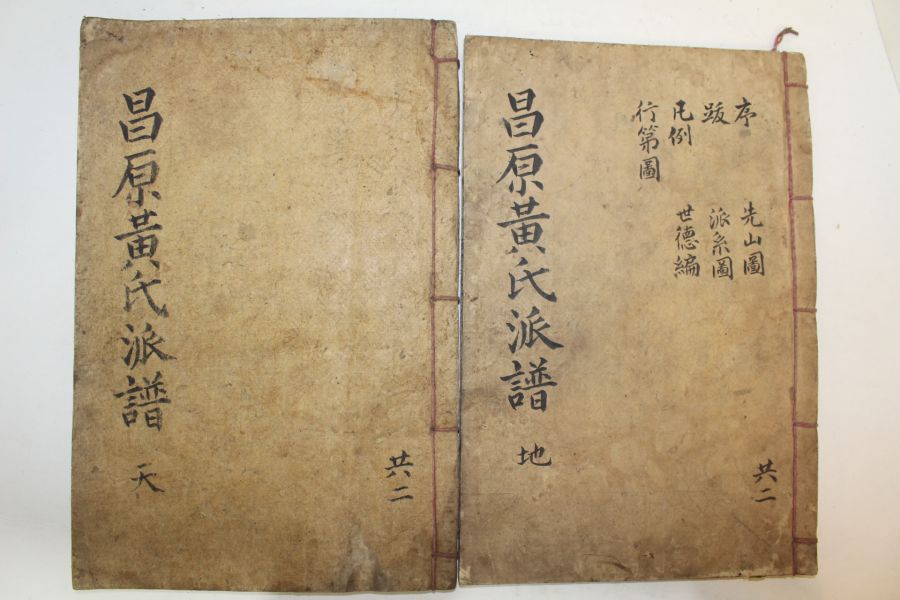 昌原黃氏派譜 天
共二
昌原黃氏派譜 地
序
跋
凡例
行第圖
先山圖
派系圖
世德編
共二